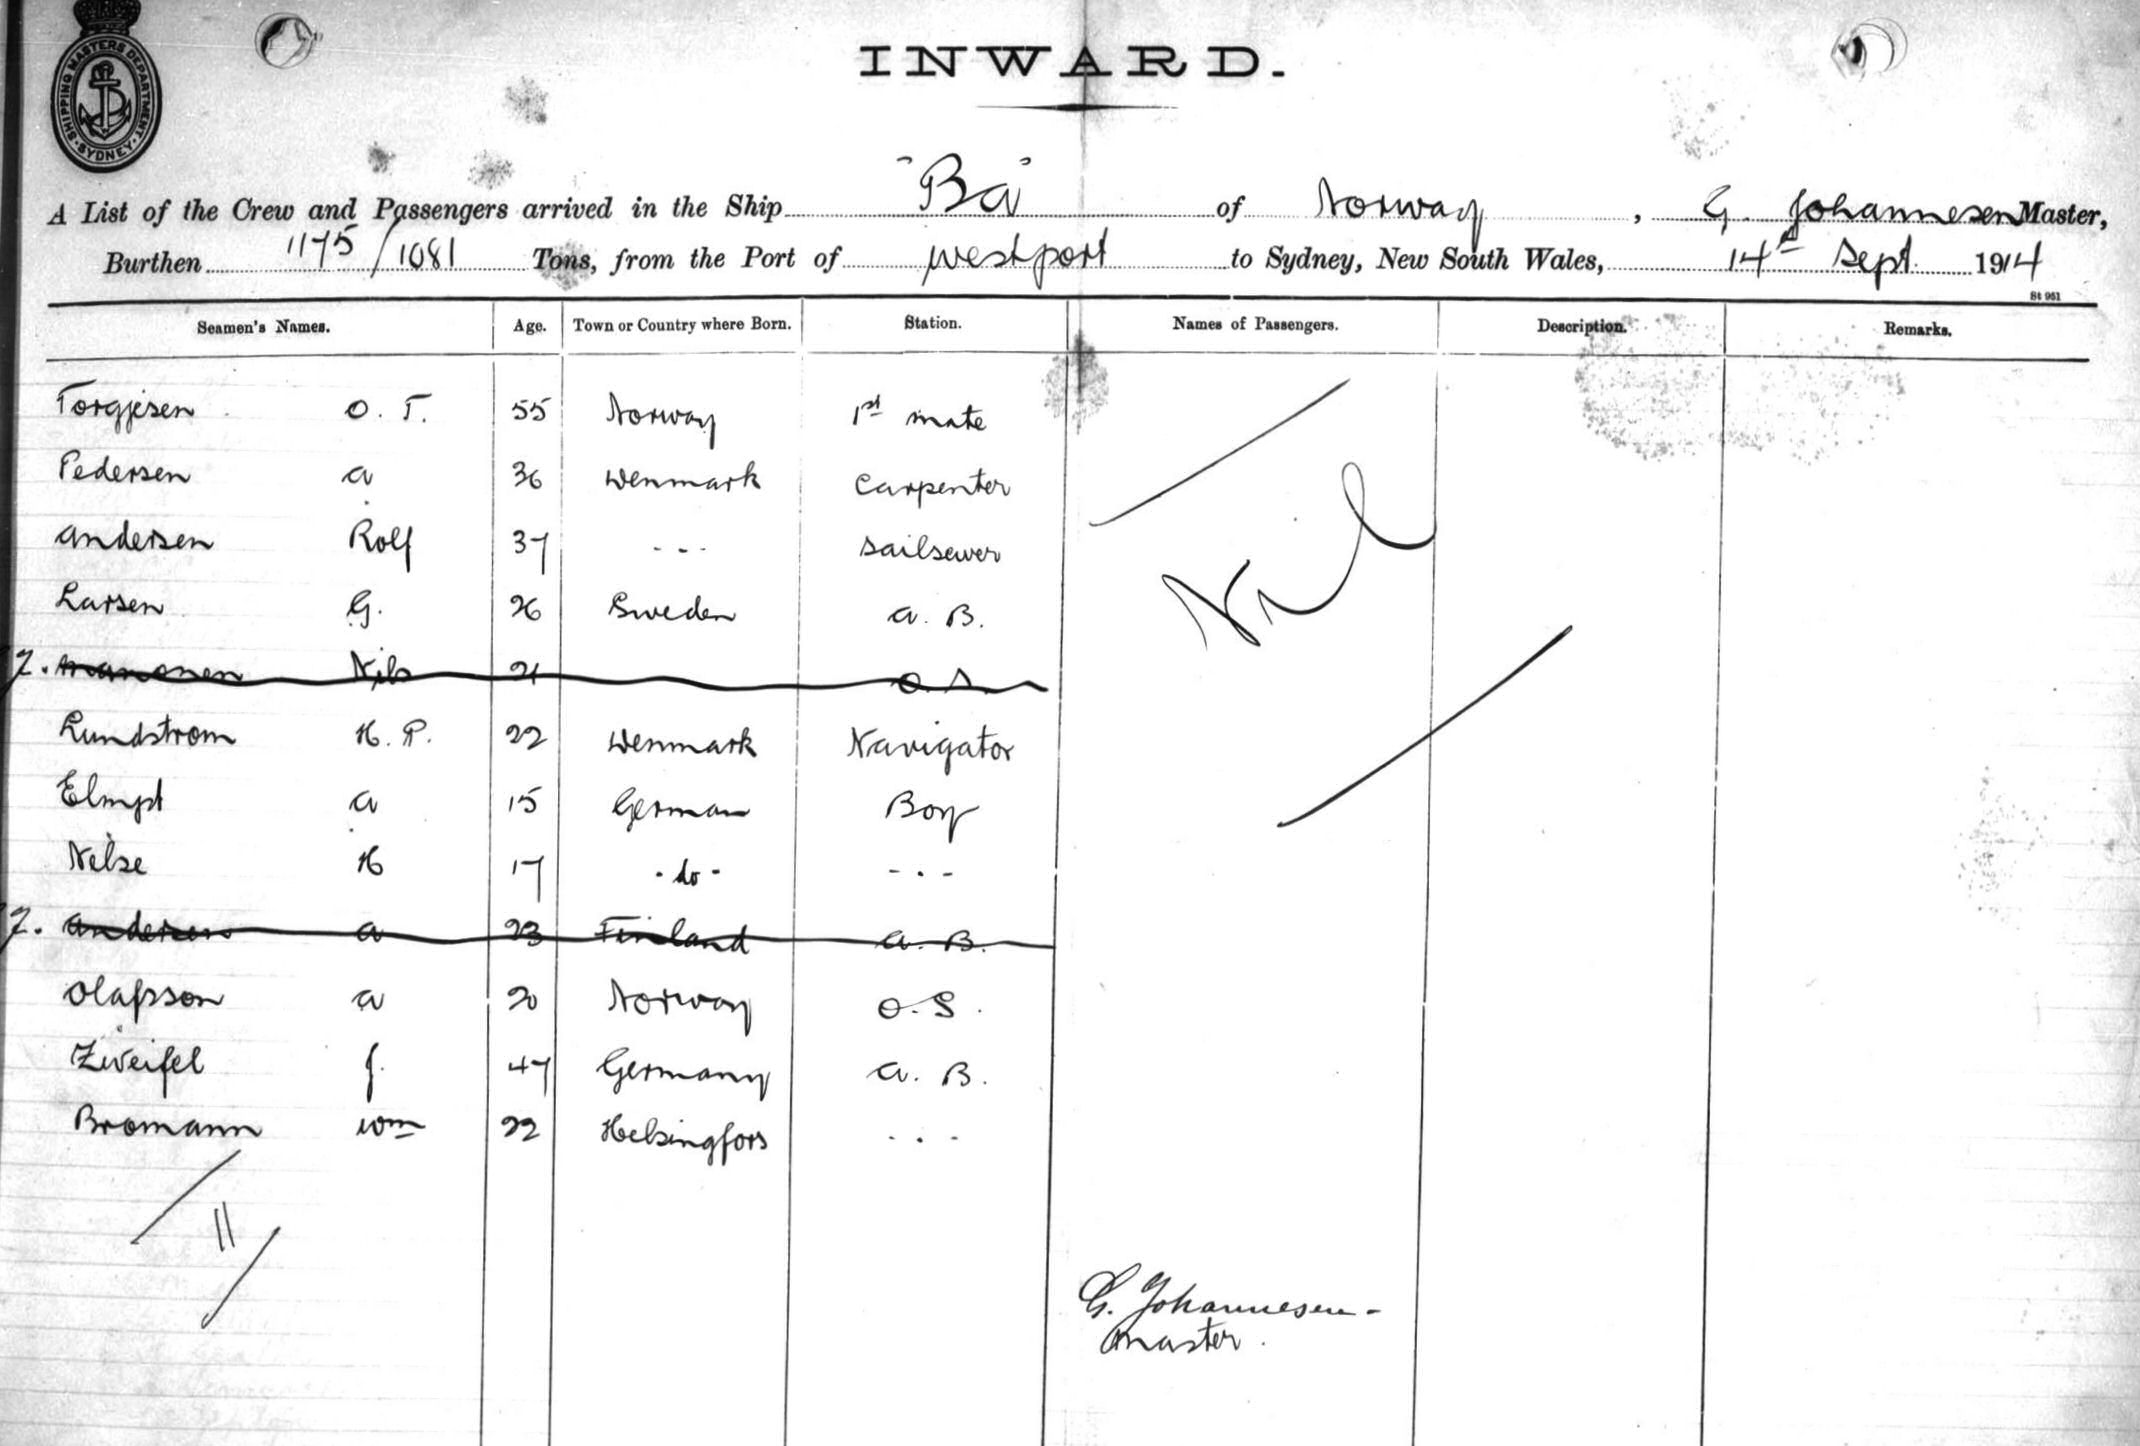 SHIPPING MASTERS DEPARTMENT
SYDNEY
INWARD.
A List of the Crew and Passengers arrived in the Ship "Ba" of Norway, G. Johannesen Master,
Burthen 1175/1081 Tons, from the Port of Westport to Sydney, New South Wales, 14th Sept 1914
St 961
Seamen's Names. Age. Town or Country where Born. Station. Names of Passengers. Description. Remarks.
Torgjesen O. T. 55 Norway 1st mate
Pedersen A 36 Denmark Carpenter
Andersen Rolf 37 - - - Sailsewer
Larsen G. 26 Sweden A. B.
Nils 21 O. S.
Nil
Lundstrom H. P. 22 Denmark Navigator
A 15 German Boy
Nelse H 17 - do - - - -
Andersen A 23 Finland A. B.
Olafsson A 20 Norway O. S.
Zweifel J. 47 Germany A. B.
Bromann Wm 22 Helsingfors - - -
11
G. Johannesen -
Master.